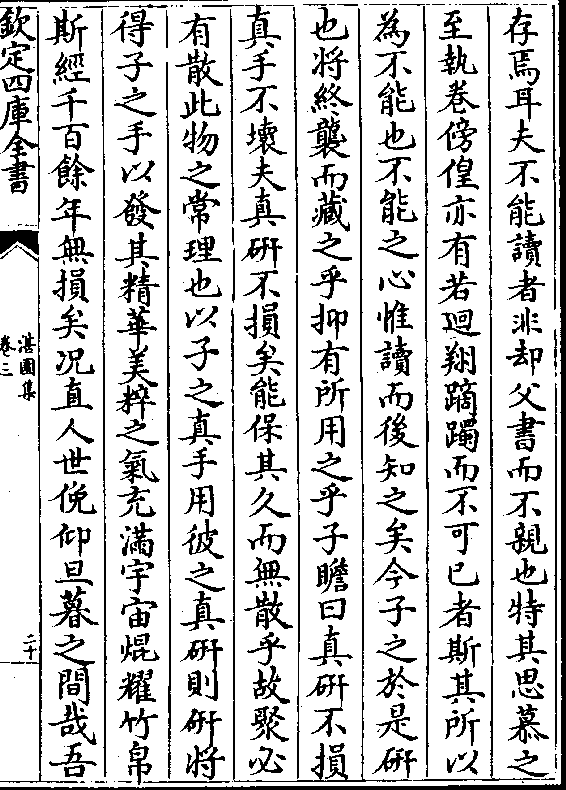 存焉耳夫不能讀者非却父書而不親也特其思慕之
至執卷傍偟亦有若廻翔蹢躅而不可已者斯其所以
為不能也不能之心惟讀而後知之矣今子之於是硏
也將終襲而藏之乎抑有所用之乎子瞻曰真硏不損
真手不壞夫真硏不損矣能保其久而無散乎故聚必
有散此物之常理也以子之真手用彼之真硏則硏將
得子之手以發其精華美粹之氣充滿宇宙焜耀竹帛
斯經千百餘年無損矣况直人世俛仰旦暮之間哉吾
欽定四庫全書
湛園集
卷三
二十